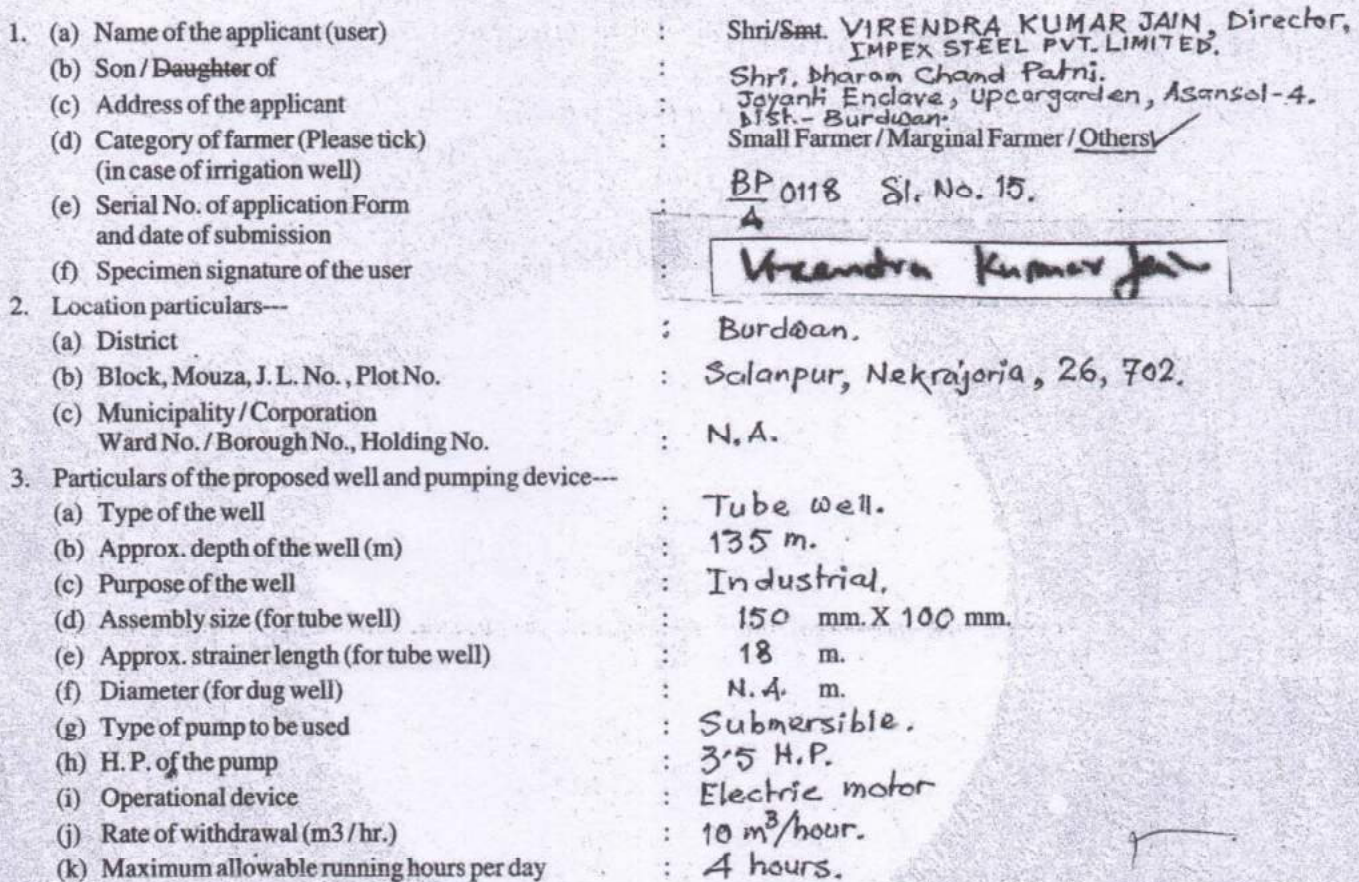 1. (a) Name of the applicant (user) : Shri/Smt. VIRENDRA KUMAR JAIN, Director,
IMPEX STEEL PVT. LIMITED.
(b) Son / Daughter of : Shri. Dharam Chand Patni.
(c) Address of the applicant : Jayanti Enclave, Upcargarden, Asansol-4.
Dist.- Burdwan.
(d) Category of farmer (Please tick) : Small Farmer / Marginal Farmer / Others
(in case of irrigation well)
(e) Serial No. of application Form : BP/A 0118 Sl. No. 15.
and date of submission
(f) Specimen signature of the user : Virendra Kumar Jain
2. Location particulars---
(a) District : Burdwan.
(b) Block, Mouza, J. L. No. , Plot No. : Salanpur, Nekrajoria, 26, 702.
(c) Municipality / Corporation
Ward No. / Borough No., Holding No. : N.A.
3. Particulars of the proposed well and pumping device---
(a) Type of the well : Tube well.
(b) Approx. depth of the well (m) : 135 m.
(c) Purpose of the well : Industrial.
(d) Assembly size (for tube well) : 150 mm. X 100 mm.
(e) Approx. strainer length (for tube well) : 18 m.
(f) Diameter (for dug well) : N.A. m.
(g) Type of pump to be used : Submersible.
(h) H. P. of the pump : 3.5 H.P.
(i) Operational device : Electric motor
(j) Rate of withdrawal (m3 / hr.) : 10 m³/hour.
(k) Maximum allowable running hours per day : 4 hours.